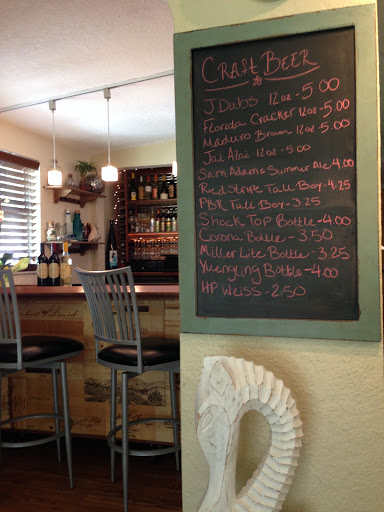 CRAFT BEER
J DUBS 12oz - 5.00
Florida Cracker 12oz - 5.00
Maduro Brown 12oz - 5.00
Jai Alai 12oz - 5.00
Sam Adams Summer Ale - 4.00
Red Stripe Tall Boy - 4.25
PBR Tall Boy - 3.25
Shock Top Bottle - 4.00
Corona Bottle - 3.50
Miller Lite Bottle - 3.25
Yuengling Bottle - 4.00
HP Weiss - 2.50